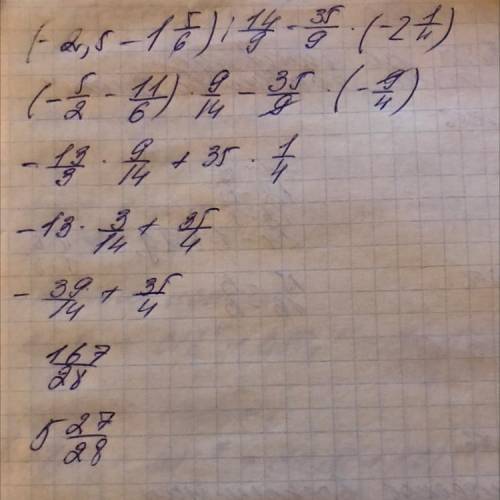 (-2,5 - 1 5/6) : 14/9 - 35/9 · (-2 1/4)
(-5/2 - 11/6) · 9/14 - 35/9 · (-9/4)
-13/3 · 9/14 + 35 · 1/4
-13 · 3/14 + 35/4
-39/14 + 35/4
167/28
5 27/28